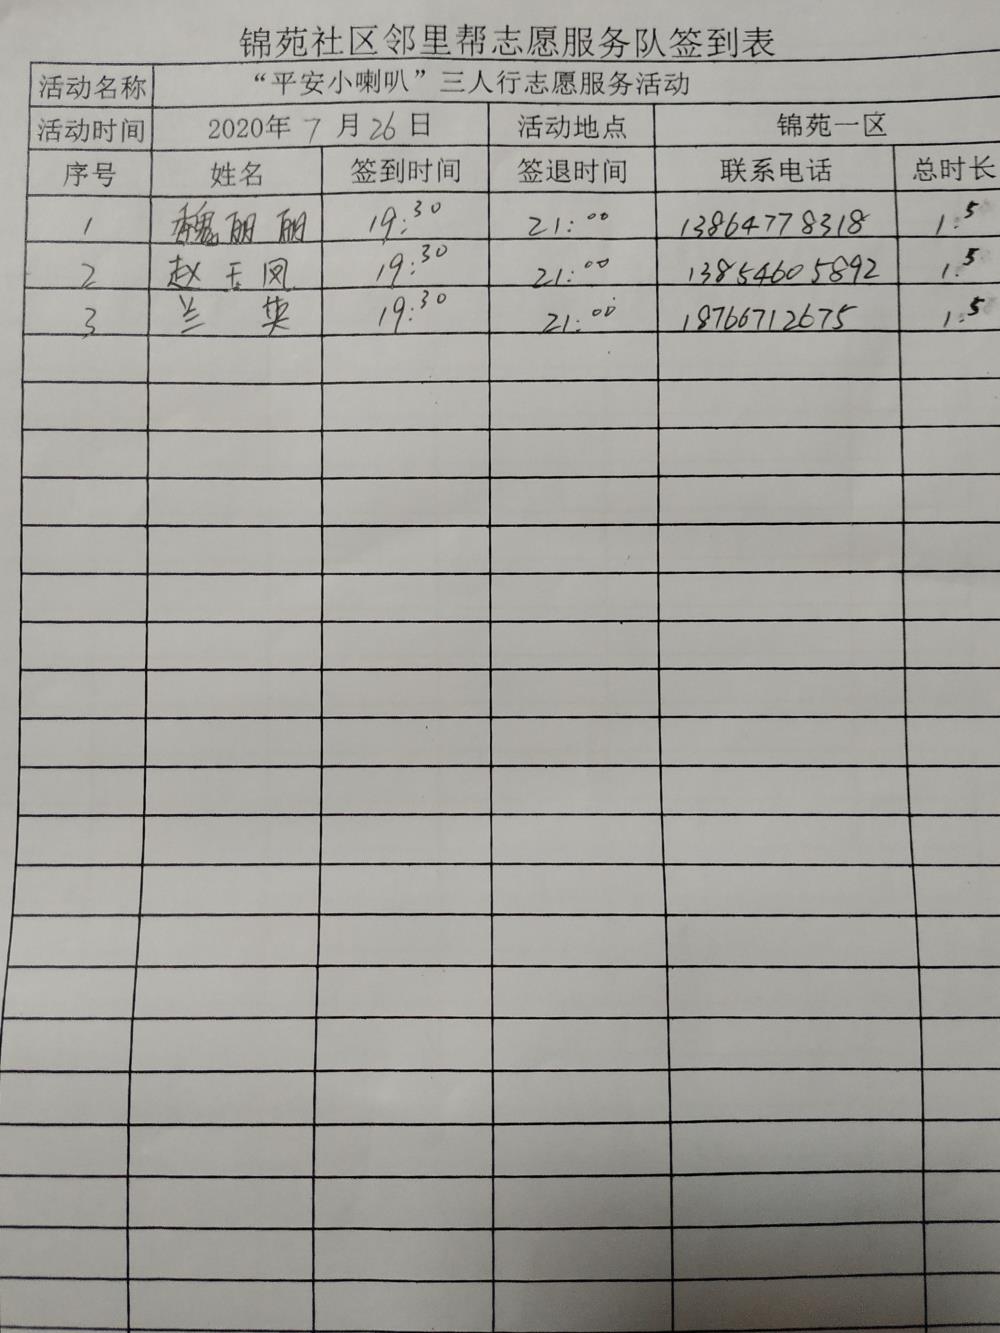 锦苑社区邻里帮志愿服务队签到表
活动名称 “平安小喇叭”三人行志愿服务活动
活动时间 2020年 7 月 26 日 活动地点 锦苑一区
序号 姓名 签到时间 签退时间 联系电话 总时长
1 魏丽丽 19:30 21:00 13864778318 1.5
2 赵玉凤 19:30 21:00 13854605892 1.5
3 兰英 19:30 21:00 18766712675 1.5